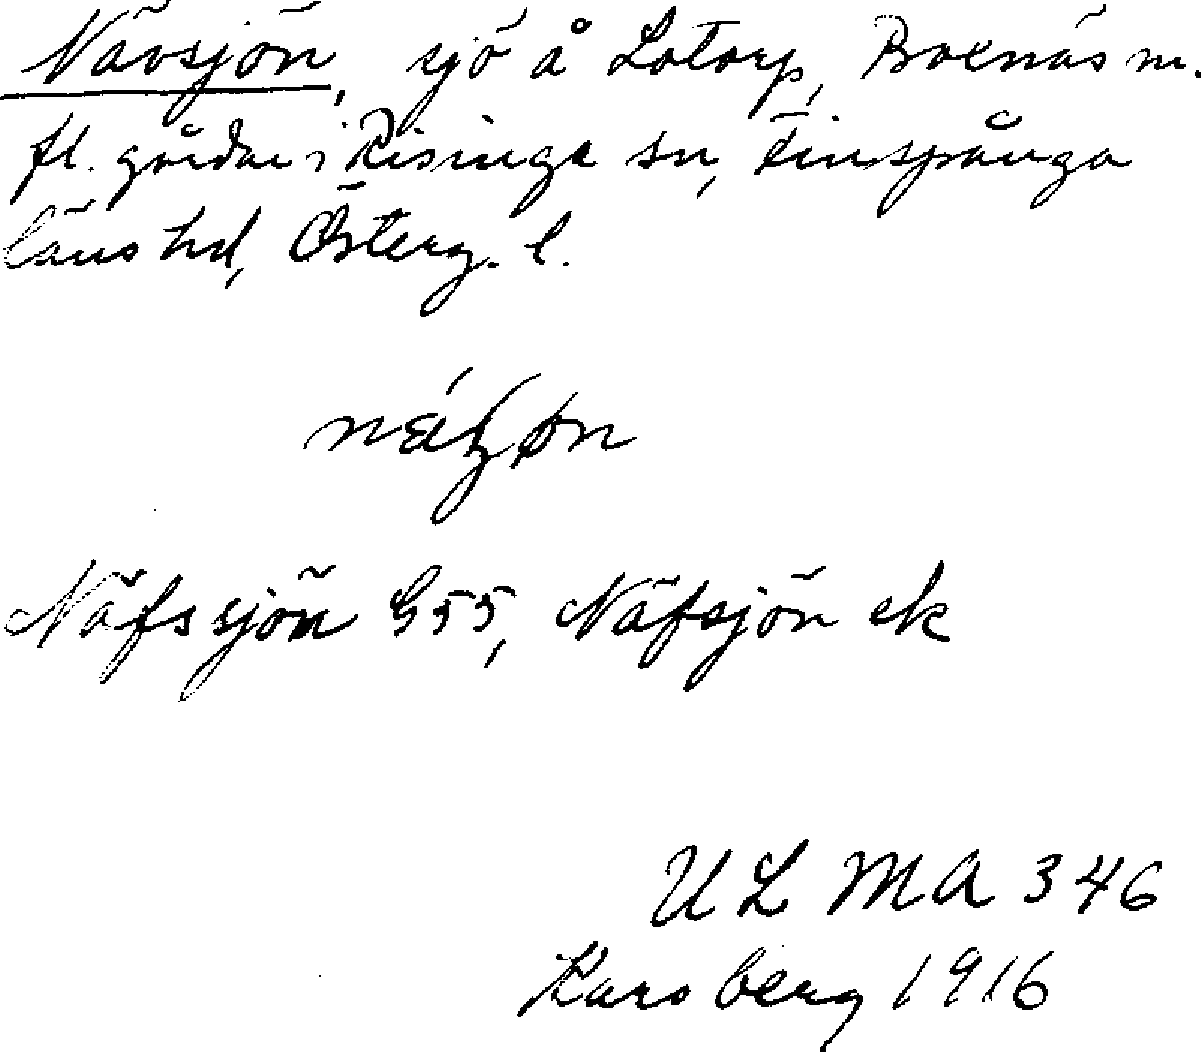 Nävsjön, sjö å Lotorp, Boenäs m.
fl. gårdar i Risinge sn, Finspånga
läns hd, Österg. l.
Näfssjön G55, Näfsjön ek
ULMA 346
Karsberg 1916